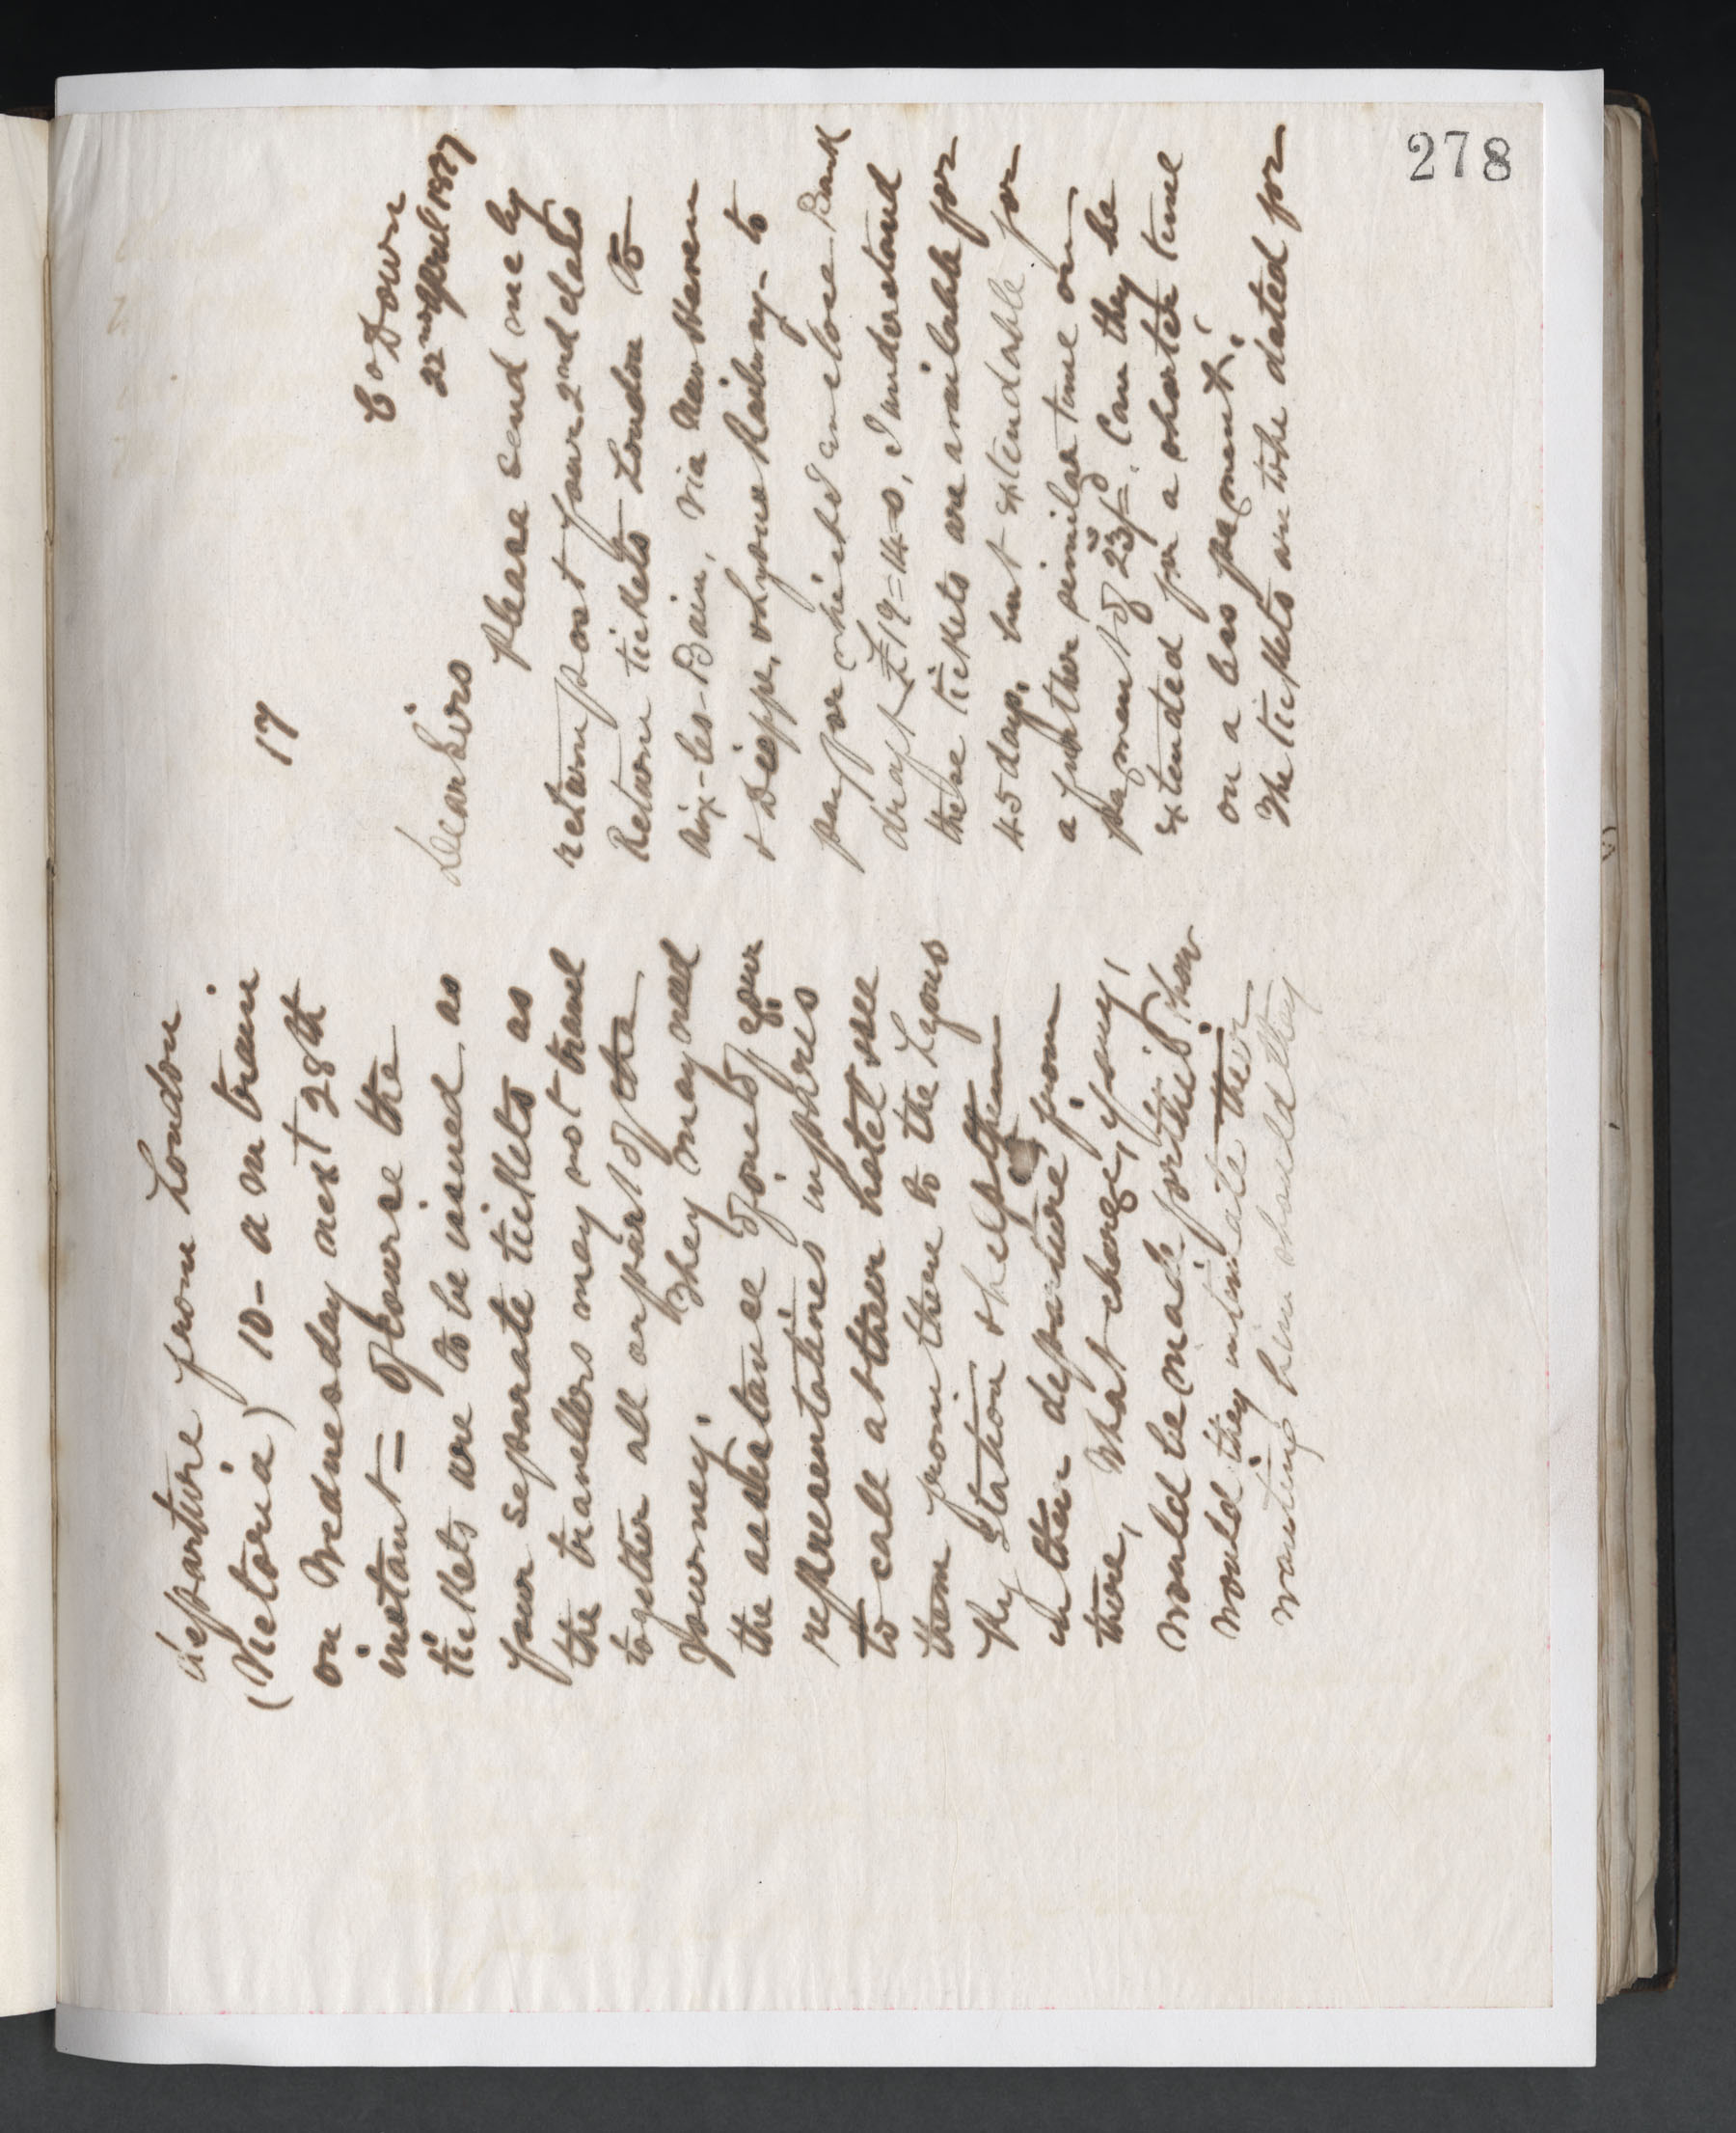 278
17
Co Down
22nd April 1897
Dear Sirs
Please send me by
return post four 2nd class
Return tickets London to
Aix-les-Bain, via New Haven
& Dieppe, & Lyons Railway - to
pay for which I enclose Bank
draft £19=14=0, I understand
these tickets are available for
45 days, but extendable for
a further similar time on
payment of 23/=. Can they be
extended for a shorter time
on a less payment.
The tickets are to be dated for
departure from London
(Victoria) 10- a m train
on Wednesday next 28th
instant = Of course the
tickets are to be issued as
four separate tickets as
the travellers may not travel
together all or part of the
Journey. They may need
the assistance of one of your
representatives in Paris
to call at their hotel see
them from there to the Lyons
Ry Station & help them
in their departure from
there, What charge, if any,
would be made for this? how
would they intimate their
wanting him should they